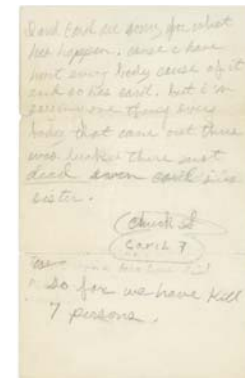 I and Caril are sorry for what
has happen. cause I have
hurt every body cause of it
and so has caril. but I'm
saying one thing every
body that came out there
was luckie there not
dead even caril's
sister.
Chuck S
Caril F
so far we have kill
7 persons.